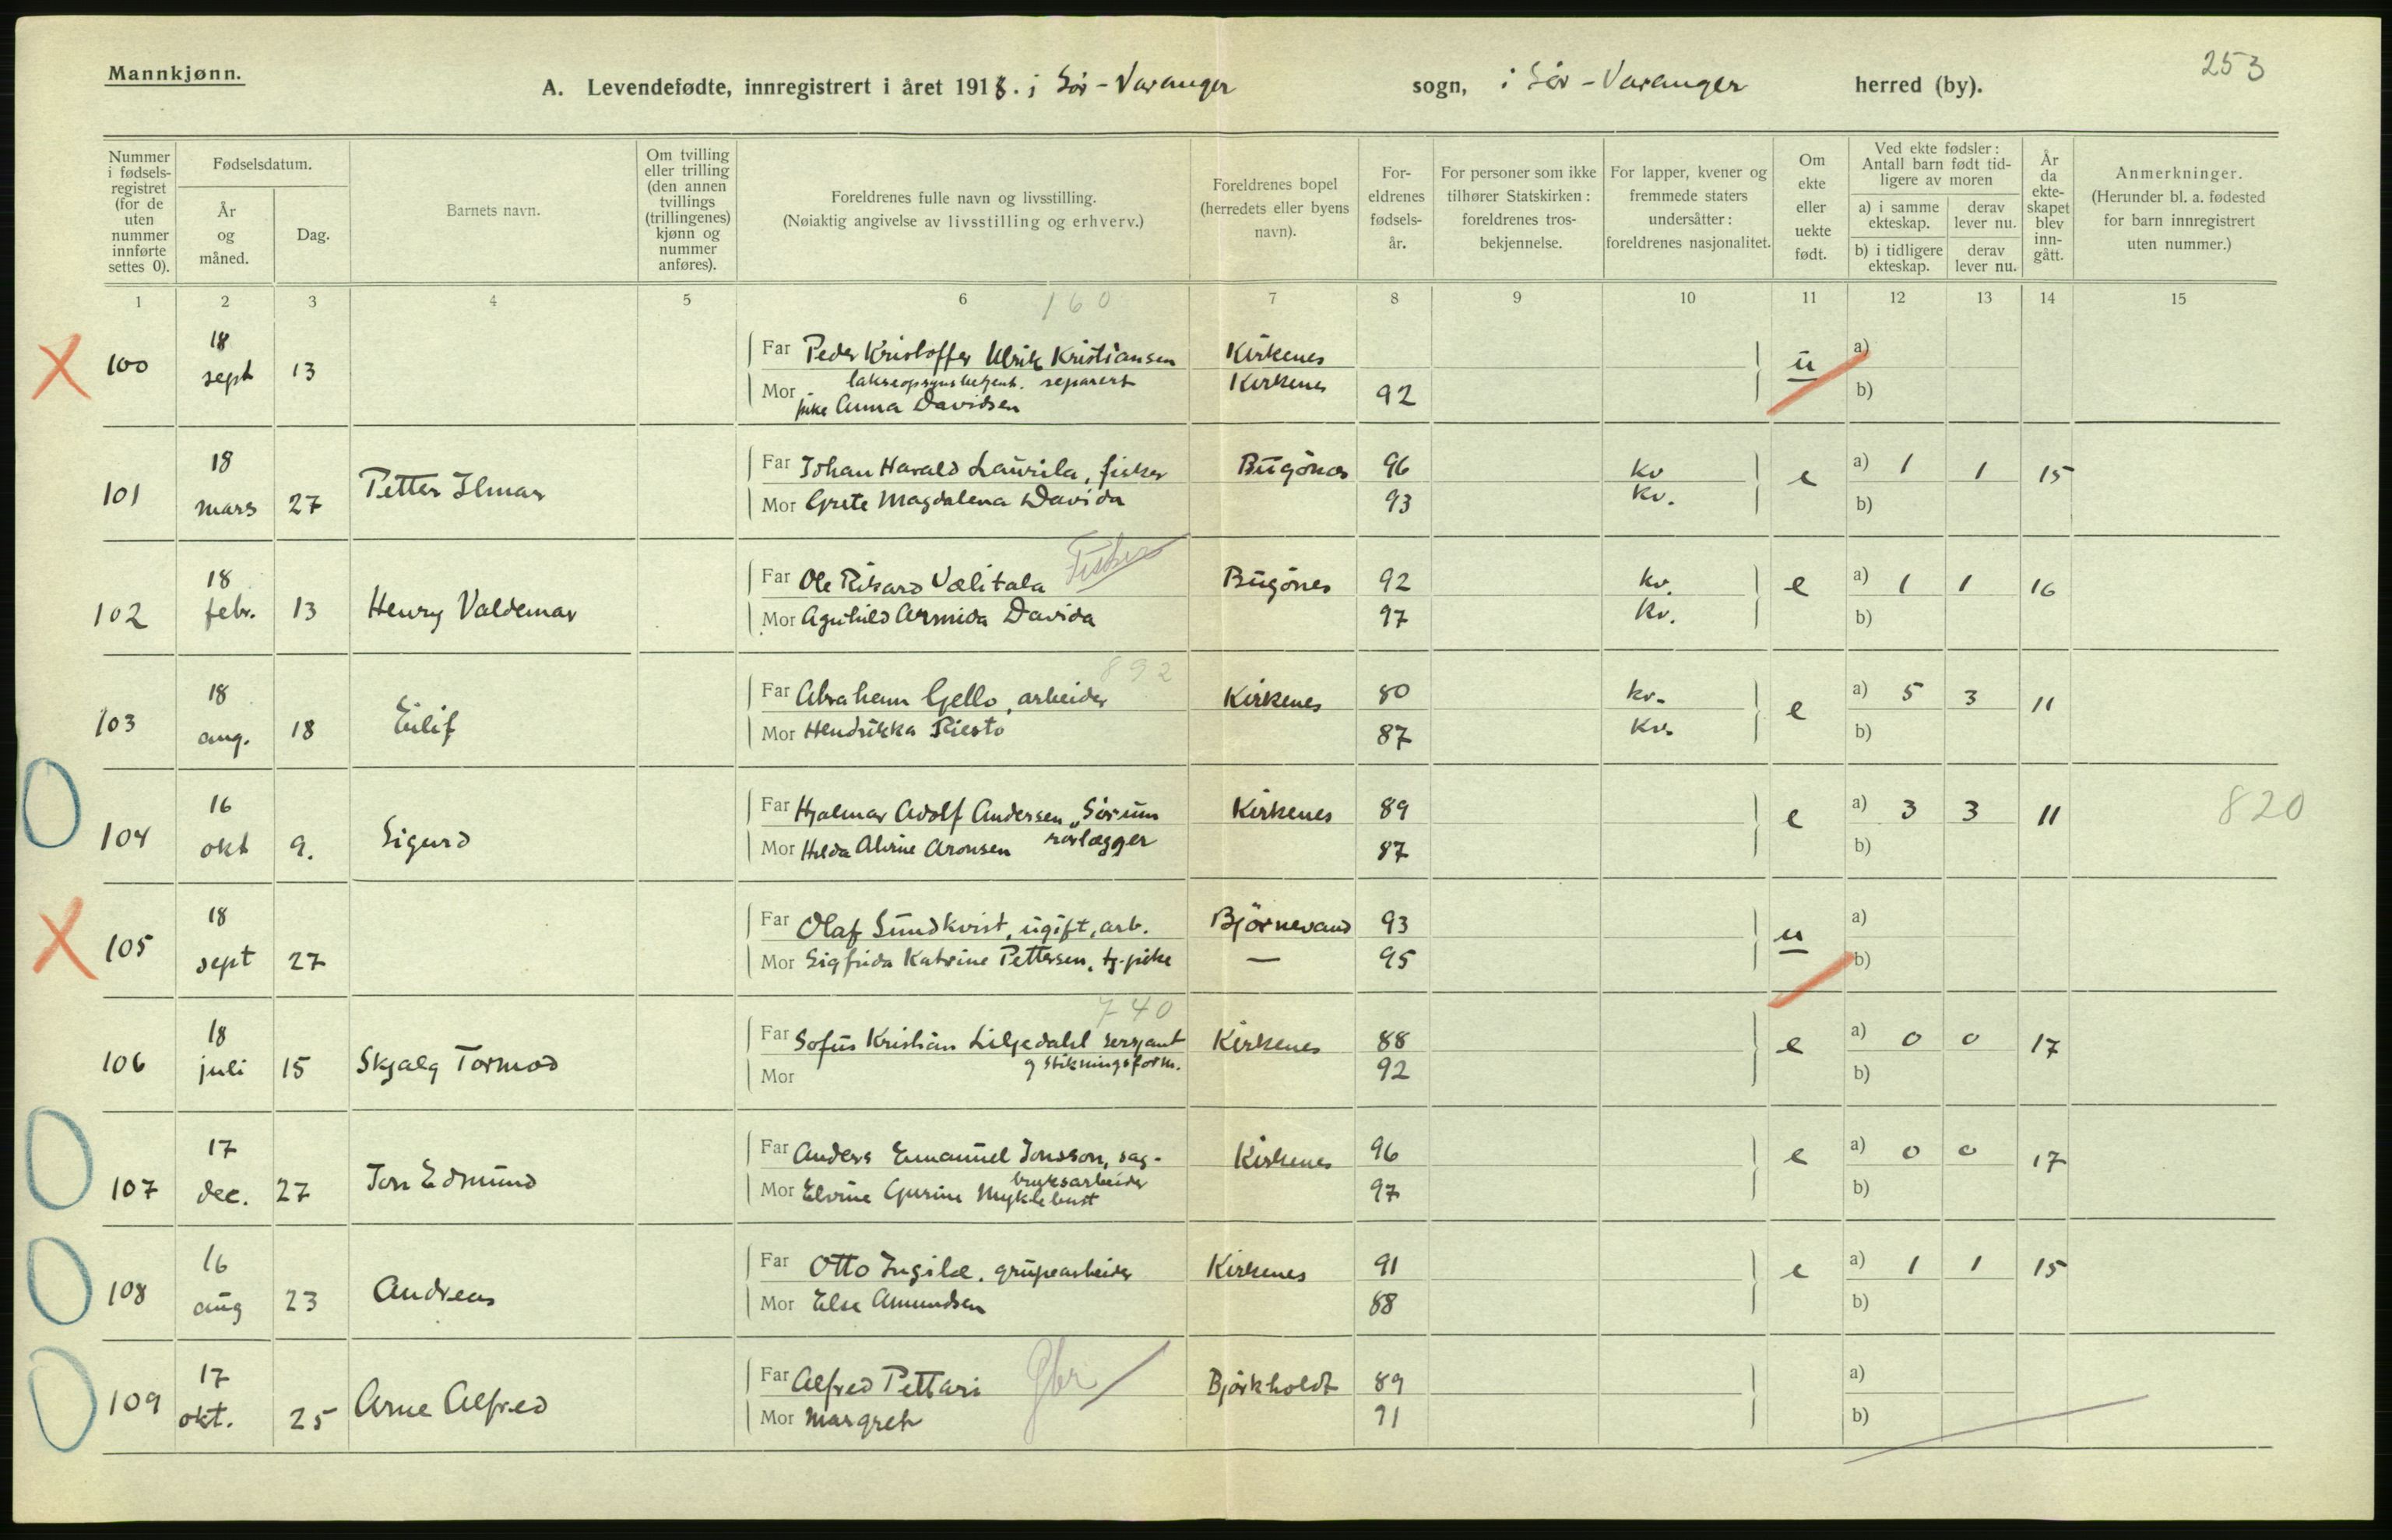 Mannkjønn.
253
A. Levendefødte, innregistrert i året 1918. i Sör-Varanger sogn, i Sör-Varanger herred (by).
Nummer i fødsels-registret (for de uten nummer innførte settes 0).
Fødselsdatum.
År og måned.
Dag.
Barnets navn.
Om tvilling eller trilling (den annen tvillings (trillingenes) kjønn og nummer anføres).
Foreldrenes fulle navn og livsstilling.
(Nøiaktig angivelse av livsstilling og erhverv.)
Foreldrenes bopel (herredets eller byens navn).
For-eldrenes fødsels-år.
For personer som ikke tilhører Statskirken: foreldrenes tros-bekjennelse.
For lapper, kvener og fremmede staters undersåtter: foreldrenes nasjonalitet.
Om ekte eller uekte født.
Ved ekte fødsler: Antall barn født tid-ligere av moren
a) i samme ekteskap.
derav lever nu.
b) i tidligere ekteskap.
derav lever nu.
År da ekte-skapet blev inn-gått.
Anmerkninger.
(Herunder bl. a. fødested for barn innregistrert uten nummer.)
1 2 3 4 5 6 7 8 9 10 11 12 13 14 15
160
100 18 sept 13
Far Peder Kristoffer Ulrik Kristiansen Kirkenes ü a)
lakseopsynsbetjent. separert
Mor pike Anna Davidsen Kirkenes 92 b)
101 18 mars 27 Petter Ilmar
Far Johan Harald Laurila, fisker Bugönes 96 kv e a) 1 1 15
Mor Grete Magdalena Davida 93 kv. b)
102 18 febr. 13 Henry Valdemar
Far Ole Rikard Välitala Fisker Bugönes 92 kv. e a) 1 1 16
Mor Aguhild Armida Davida 97 kv. b)
892
103 18 aug. 18 Eilif
Far Abraham Gello, arbeider Kirkenes 80 kv. e a) 5 3 11
Mor Hendrikka Riesto 87 kv. b)
104 16 okt 9. Sigurd
Far Hjalmar Adolf Andersen Sörum Kirkenes 89 e a) 3 3 11 820
rørlægger
Mor Hilda Alvine Aronsen 87 b)
105 18 sept 27
Far Olaf Sundkvist, ugift, arb. Björnevand 93 u a)
Mor Sigfrida Katrine Pettersen, tj.pike — 95 b)
740
106 18 juli 15 Skjalg Tormod
Far Sofus Kristian Liljedahl sersjant Kirkenes 88 e a) 0 0 17
og stikningsform.
Mor 92 b)
107 17 dec. 27 Jon Edmund
Far Anders Emanuel Jonsson, sag- Kirkenes 96 e a) 0 0 17
bruksarbeider
Mor Elvine Gurine Myklebust 97 b)
108 16 aug 23 Andreas
Far Otto Ingilæ. grupearbeider Kirkenes 91 e a) 1 1 15
Mor Else Amundsen 88 b)
109 17 okt. 25 Arne Alfred
Far Alfred Pettari Gbr Björkholdt 89 a)
Mor Margreth 91 b)